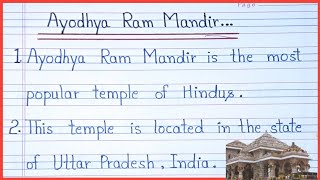 Page
Ayodhya Ram Mandir...
1. Ayodhya Ram Mandir is the most
popular temple of Hindus.
2. This temple is located in the state
of Uttar Pradesh, India.